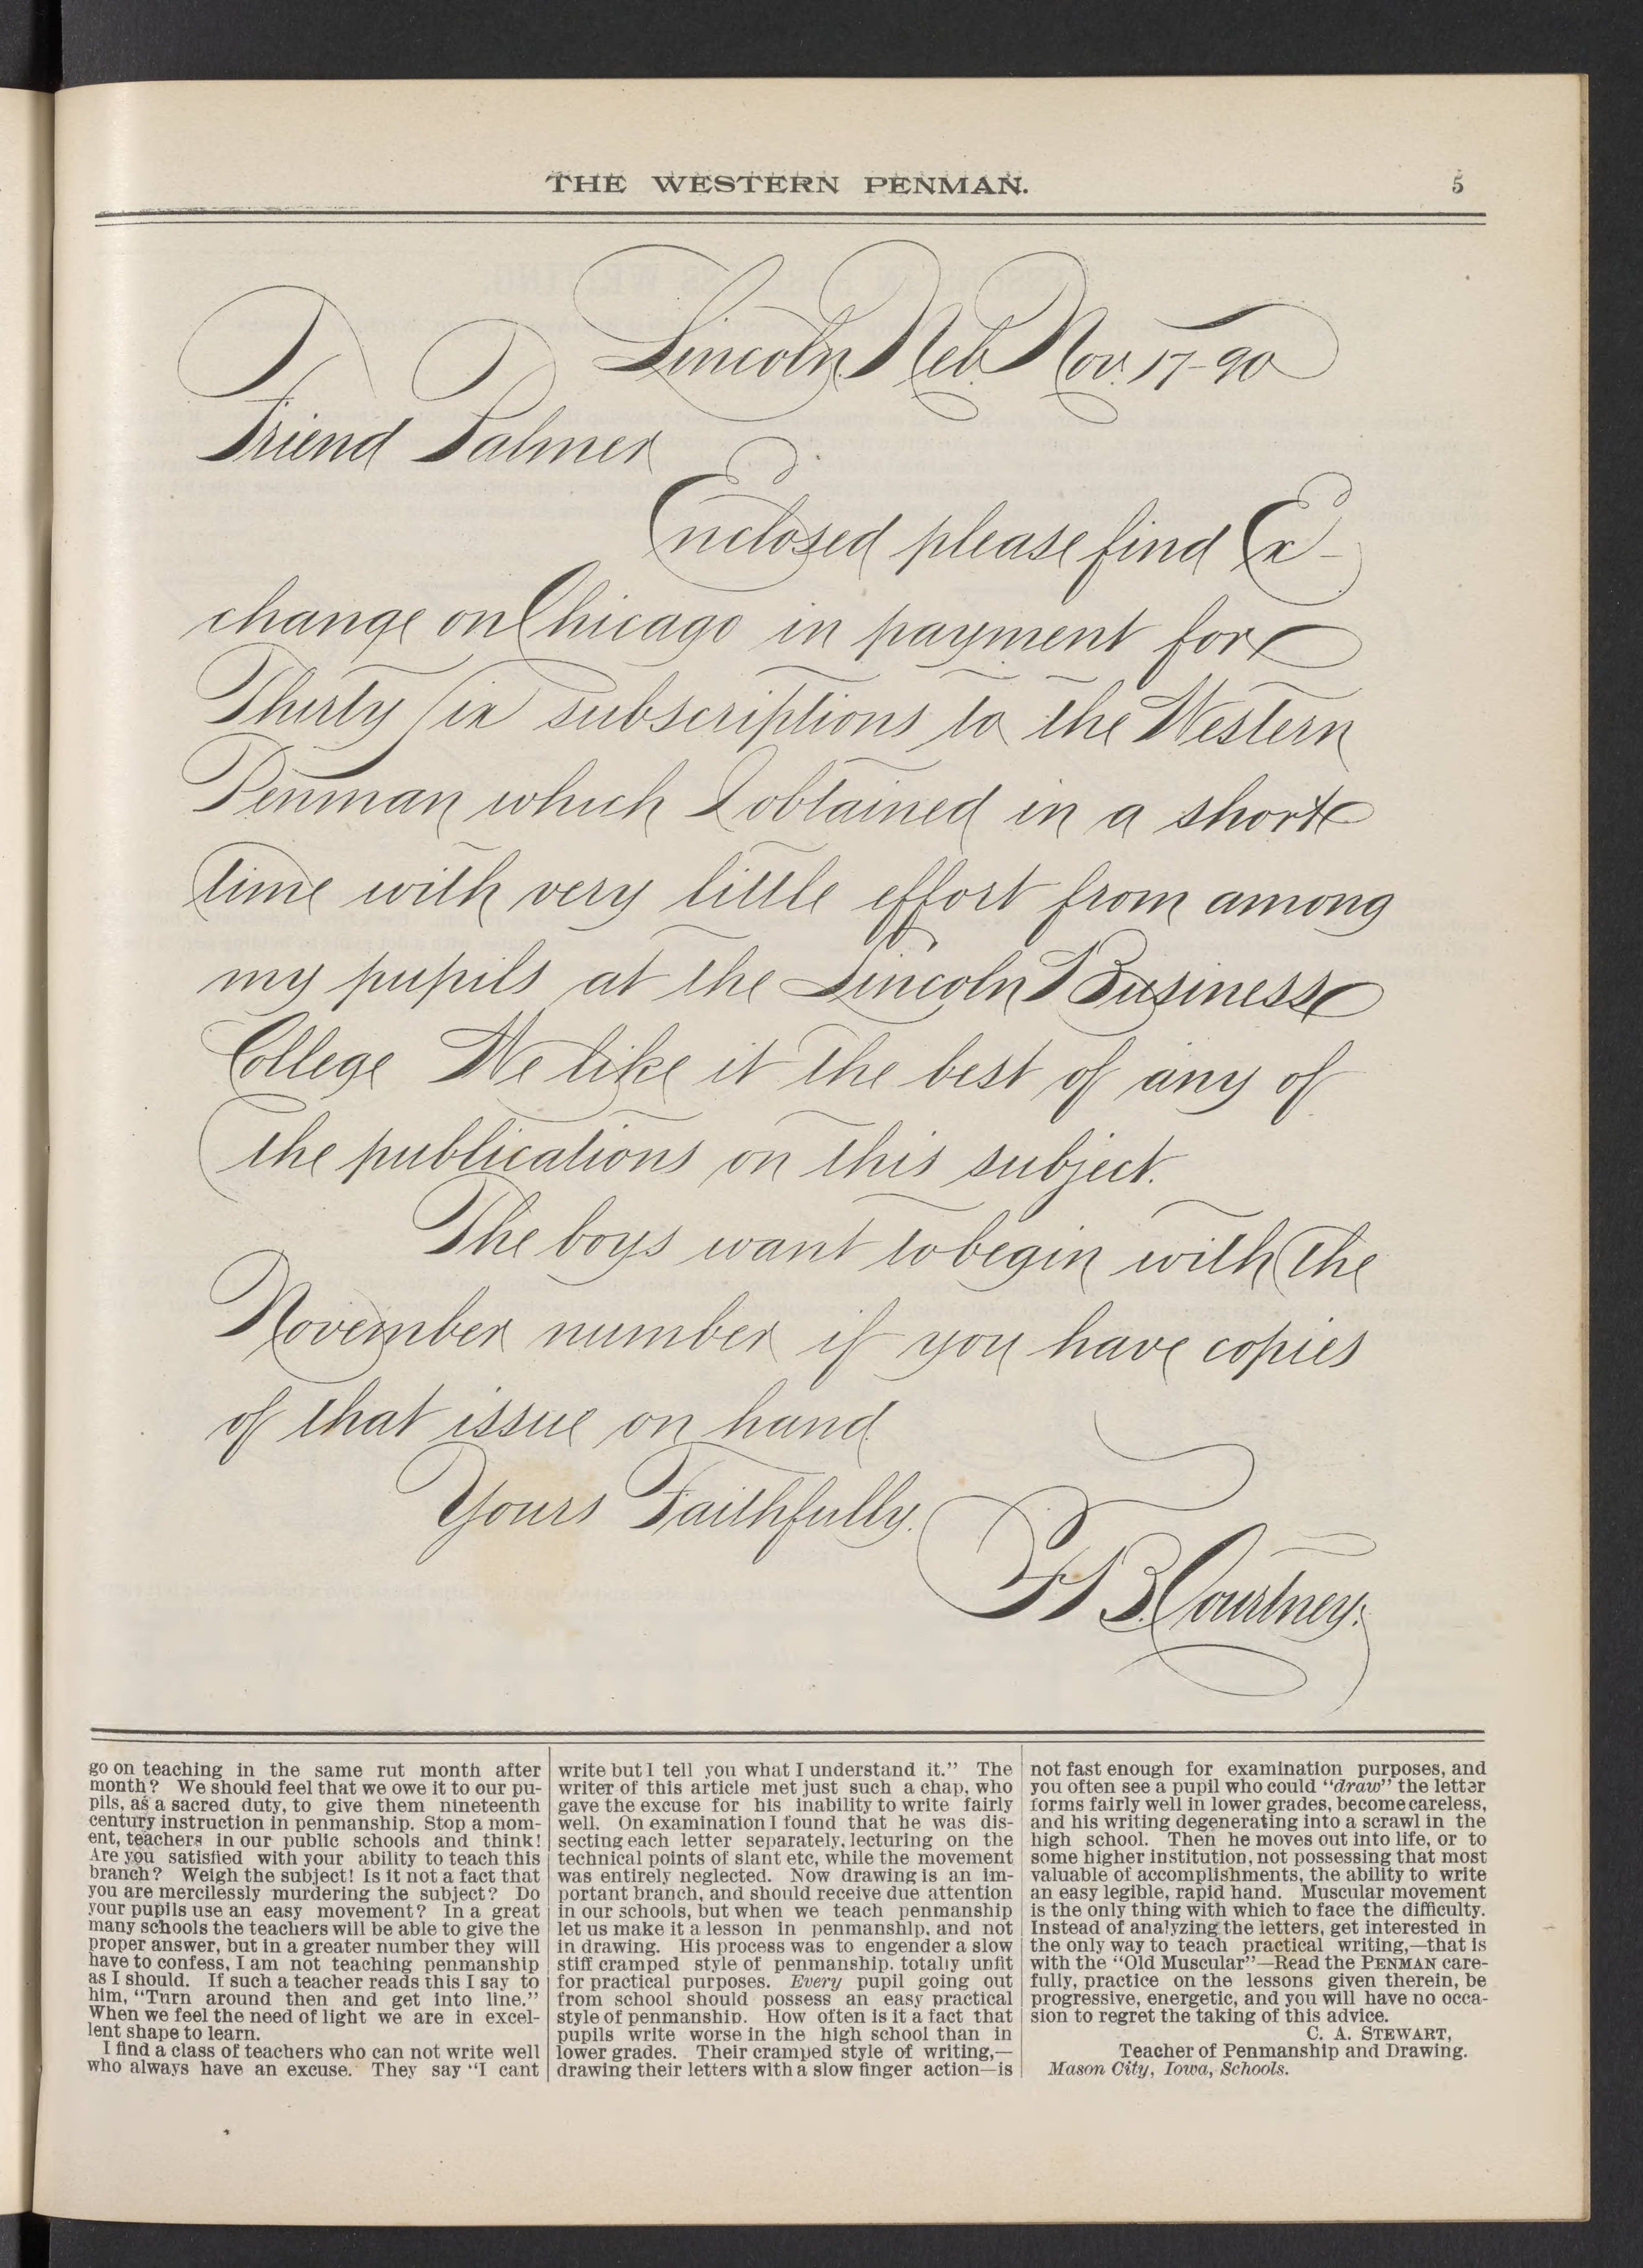 THE WESTERN PENMAN. 5
Lincoln, Neb. Nov. 17-90
Friend Palmer
Enclosed please find Ex-
change on Chicago in payment for
Thirty Six subscriptions to the Western
Penman which I obtained in a short
time with very little effort from among
my pupils at the Lincoln Business
College We like it the best of any of
the publications on this subject.
The boys want to begin with the
November number if you have copies
of that issue on hand
Yours Faithfully.
F B. Courtney.
go on teaching in the same rut month after
month? We should feel that we owe it to our pu-
pils, as a sacred duty, to give them nineteenth
century instruction in penmanship. Stop a mom-
ent, teachers in our public schools and think!
Are you satisfied with your ability to teach this
branch? Weigh the subject! Is it not a fact that
you are mercilessly murdering the subject? Do
your pupils use an easy movement? In a great
many schools the teachers will be able to give the
proper answer, but in a greater number they will
have to confess, I am not teaching penmanship
as I should. If such a teacher reads this I say to
him, "Turn around then and get into line."
When we feel the need of light we are in excel-
lent shape to learn.
I find a class of teachers who can not write well
who always have an excuse. They say "I cant
write but I tell you what I understand it." The
writer of this article met just such a chap, who
gave the excuse for his inability to write fairly
well. On examination I found that he was dis-
secting each letter separately, lecturing on the
technical points of slant etc, while the movement
was entirely neglected. Now drawing is an im-
portant branch, and should receive due attention
in our schools, but when we teach penmanship
let us make it a lesson in penmanship, and not
in drawing. His process was to engender a slow
stiff cramped style of penmanship. totally unfit
for practical purposes. Every pupil going out
from school should possess an easy practical
style of penmanship. How often is it a fact that
pupils write worse in the high school than in
lower grades. Their cramped style of writing,—
drawing their letters with a slow finger action—is
not fast enough for examination purposes, and
you often see a pupil who could "draw" the letter
forms fairly well in lower grades, become careless,
and his writing degenerating into a scrawl in the
high school. Then he moves out into life, or to
some higher institution, not possessing that most
valuable of accomplishments, the ability to write
an easy legible, rapid hand. Muscular movement
is the only thing with which to face the difficulty.
Instead of analyzing the letters, get interested in
the only way to teach practical writing,—that is
with the "Old Muscular"—Read the PENMAN care-
fully, practice on the lessons given therein, be
progressive, energetic, and you will have no occa-
sion to regret the taking of this advice.
C. A. STEWART,
Teacher of Penmanship and Drawing.
Mason City, Iowa, Schools.